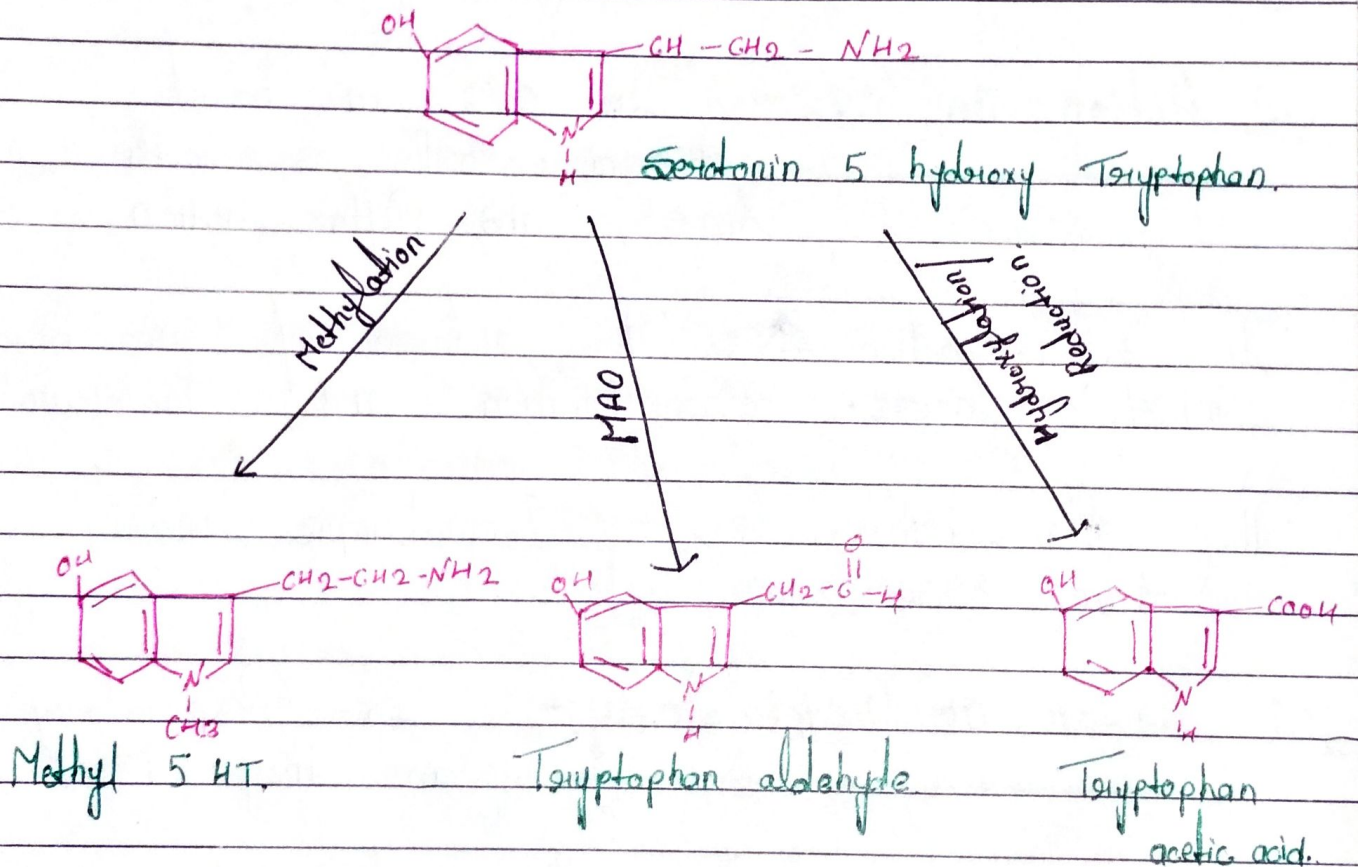 OH
CH - CH2 - NH2
N
H
Serotonin 5 hydroxy Tryptophan.
Methylation
MAO
Hydroxylation /
Reduction.
OH
CH2-CH2-NH2
N
CH3
Methyl 5 HT.
OH
O
CH2-C-H
N
H
Tryptophan aldehyde
OH
COOH
N
H
Tryptophan
acetic acid.